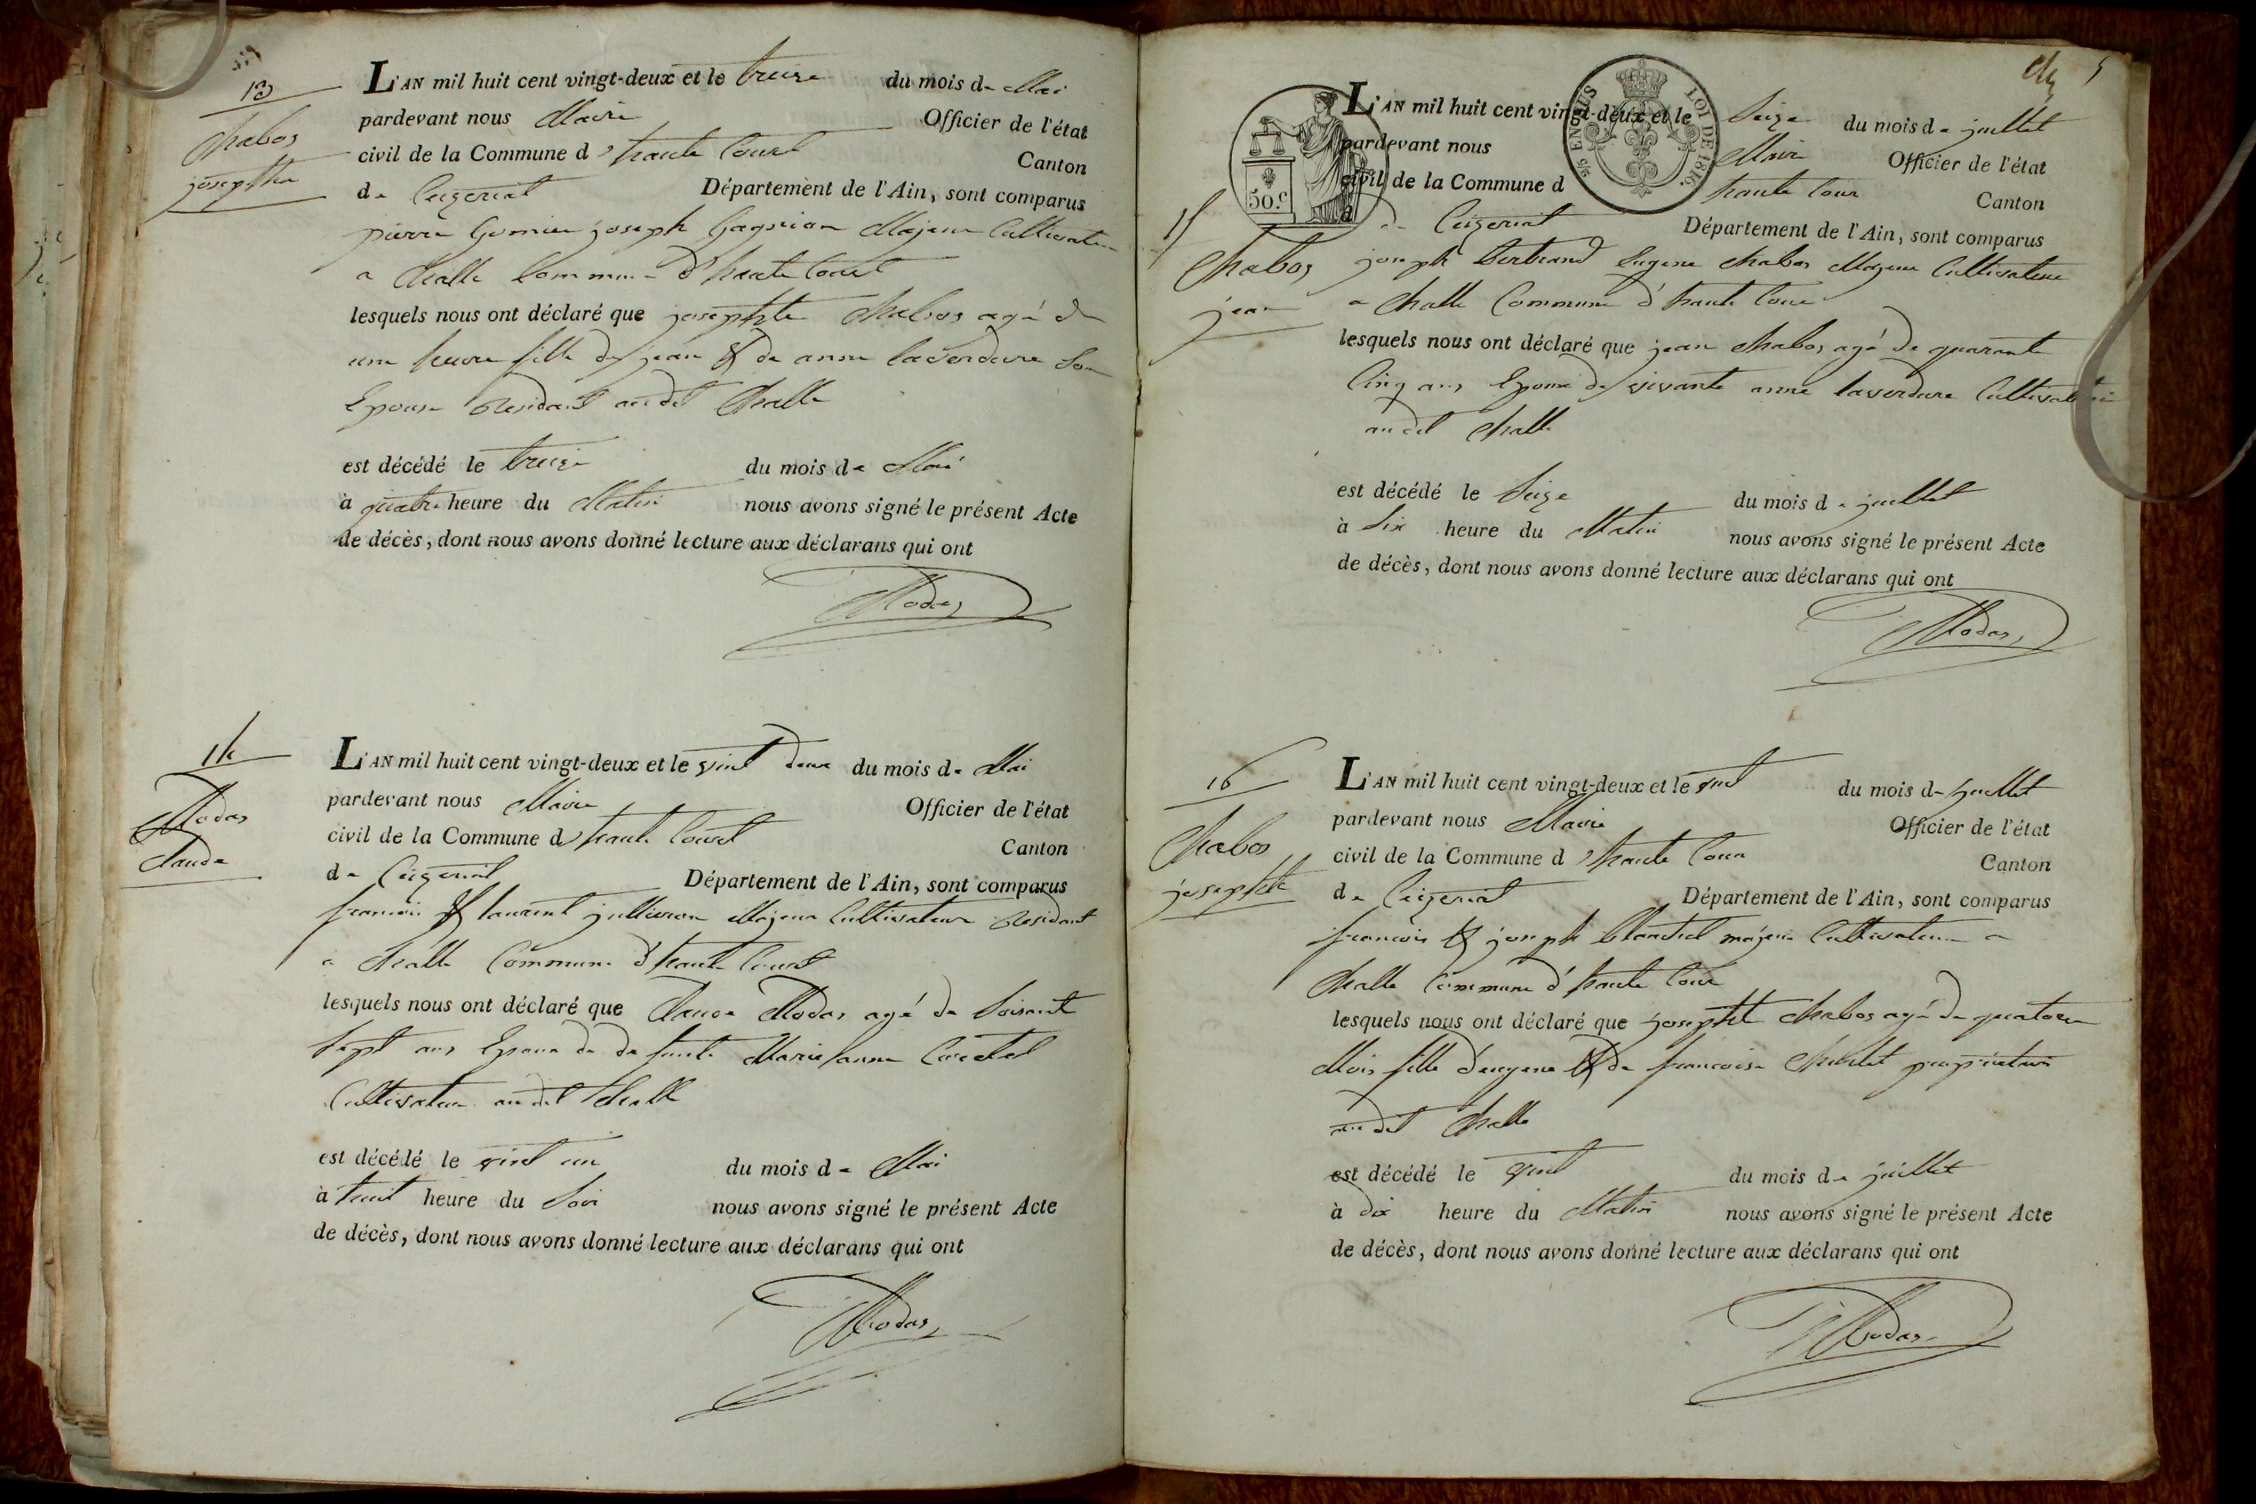 13
Chabos
josephte
L'AN mil huit cent vingt-deux et le treize du mois de Mai
pardevant nous Maire Officier de l'état
civil de la Commune d'haute Court Canton
de Ceizeriat Département de l'Ain, sont comparus
pierre joseph Majeur Cultivateur
a Challe Commune d'haute Court
lesquels nous ont déclaré que josephte Chabos agé de
une heure fille de jean & de anne laverdure Son
Epouse Residant audit Challe
est décédé le treize du mois de Mai
à quatre heure du Matin nous avons signé le présent Acte
de décès, dont nous avons donné lecture aux déclarans qui ont
Modas
14
Modas
Claude
L'AN mil huit cent vingt-deux et le vint deux du mois de Mai
pardevant nous Maire Officier de l'état
civil de la Commune d'haute Court Canton
de Ceizeriat Département de l'Ain, sont comparus
francois & laurent jullieron Majeur Cultivateur Residant
a Challe Commune d'haute Court
lesquels nous ont déclaré que Claude Modas agé de Soisante
Sept ans Epoux de defunte Marie anne
Cultivateur audit Challe
est décédé le vint un du mois de Mai
à huit heure du Soir nous avons signé le présent Acte
de décès, dont nous avons donné lecture aux déclarans qui ont
Modas
5
50.c
5/5 EN SUS
LOI DE 1816.
15
Chabos
jean
L'AN mil huit cent vingt-deux et le Seize du mois de juillet
pardevant nous Maire Officier de l'état
civil de la Commune d haute Cour Canton
de Ceizeriat Département de l'Ain, sont comparus
joseph bertrand Eugene Chabos Majeur Cultivateur
a Challe Commune d'haute Cour
lesquels nous ont déclaré que jean Chabos agé de quarante
Cinq ans Epoux de vivante anne laverdure Cultivateur
audit Challe
est décédé le Seize du mois de juillet
à Six heure du Matin nous avons signé le présent Acte
de décès, dont nous avons donné lecture aux déclarans qui ont
Modas
16
Chabos
josephte
L'AN mil huit cent vingt-deux et le vint du mois de juillet
pardevant nous Maire Officier de l'état
civil de la Commune d'haute Cour Canton
de Ceizeriat Département de l'Ain, sont comparus
francois & joseph majeur Cultivateur a
Challe Commune d'haute Cour
lesquels nous ont déclaré que josephte Chabos agé de quatorze
Mois fille d'eugene & de francoise proprietaire
audit Challe
est décédé le vint du mois de juillet
à dix heure du Matin nous avons signé le présent Acte
de décès, dont nous avons donné lecture aux déclarans qui ont
Modas